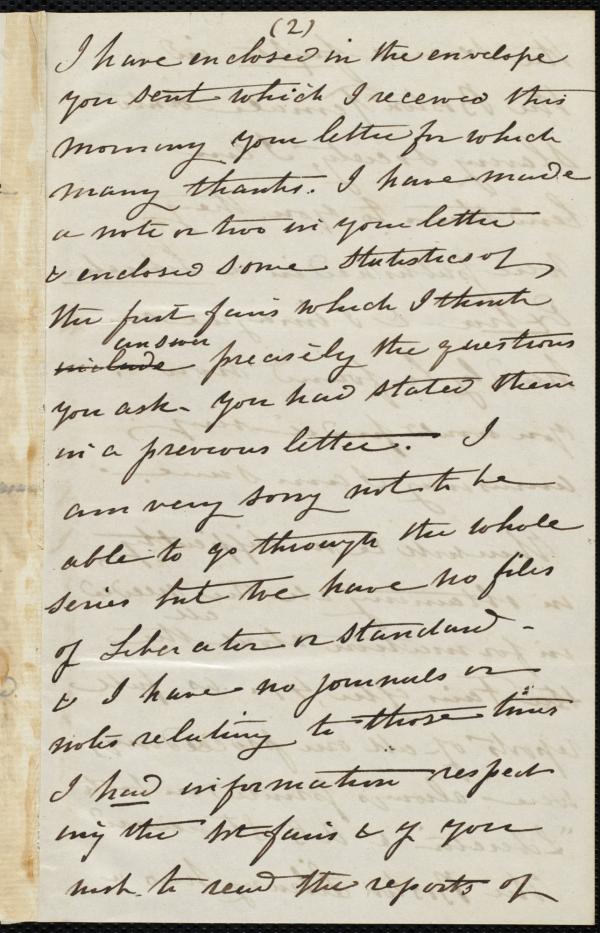 (2)
I have enclosed in the envelope
you sent which I received this
morning your letter for which
many thanks. I have made
a note or two in your letter
& enclosed some statistics of
the first fairs which I think
answer
include precisely the questions
you ask - you had stated them
in a previous letter. I
am very sorry not to be
able to go through the whole
series but we have no files
of Liberator or Standard -
& I have no journals or
notes relating to those times
I had information respect
ing the 1st fairs & if you
wish to read the reports of